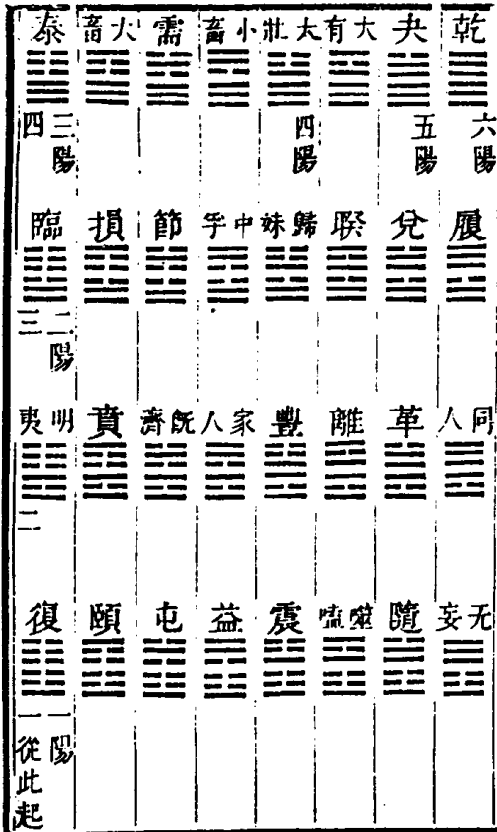 乾 夬 大有 大壯 小畜 需 大畜 泰
六陽 五陽 四陽 三陽四
履 兌 睽 歸妹 中孚 節 損 臨
二陽三
同人 革 離 豐 家人 既濟 賁 明夷
二
无妄 隨 噬嗑 震 益 屯 頤 復
一陽
一從此起